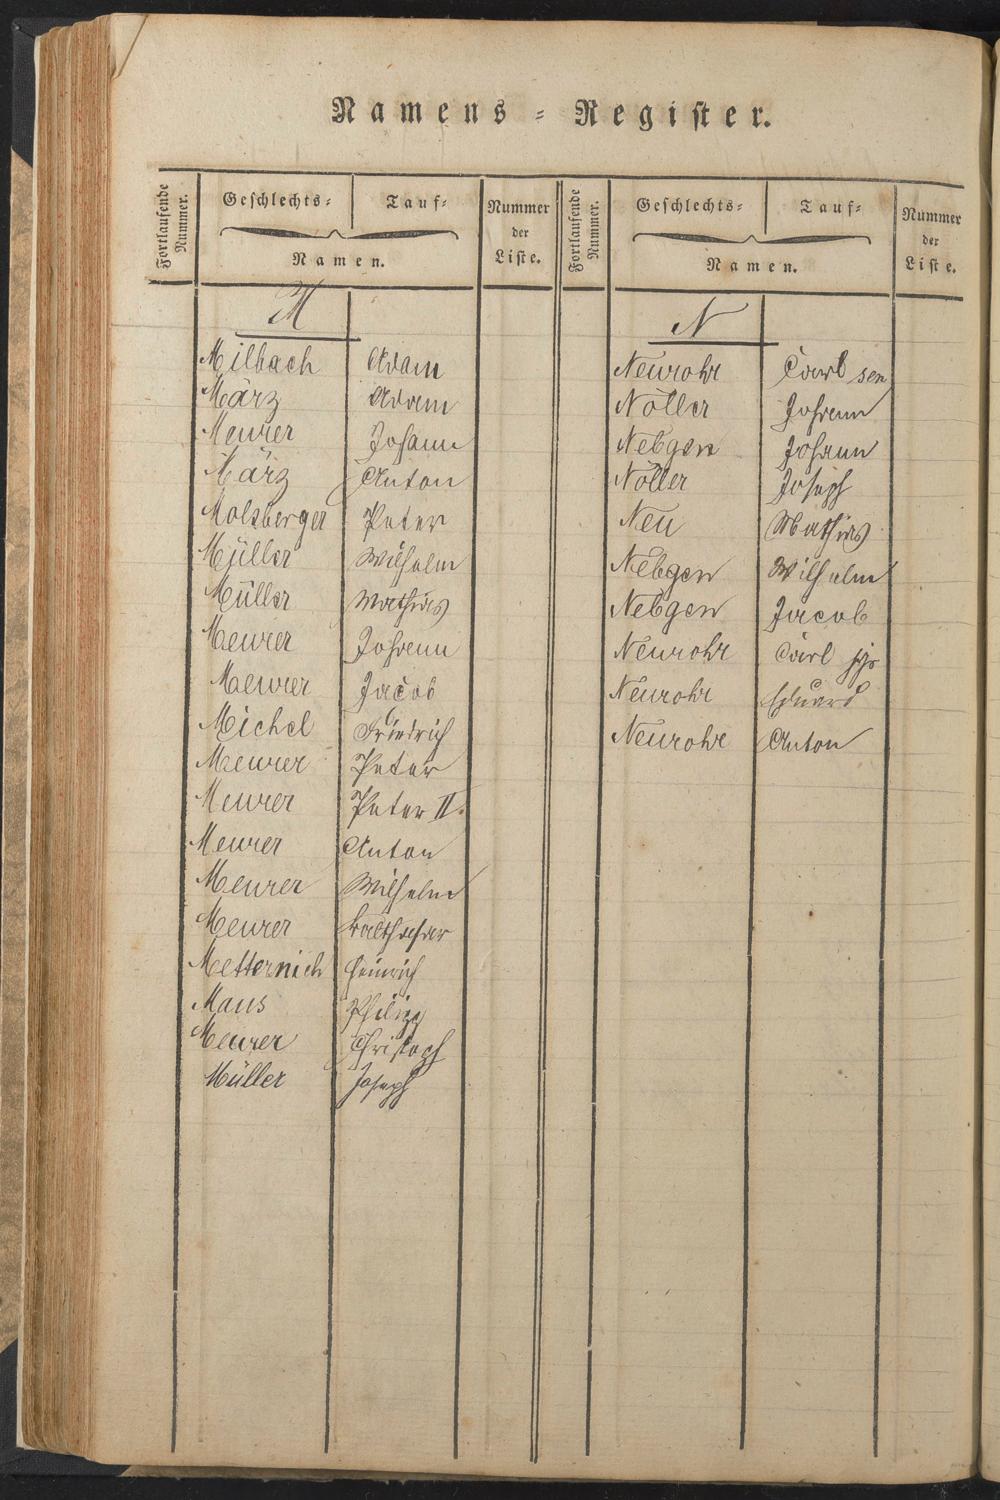 Namens-Register.
Fortlaufende Nummer.
Geschlechts- Tauf-
Namen.
Nummer der Liste.
Fortlaufende Nummer.
Geschlechts- Tauf-
Namen.
Nummer der Liste.
M
Milbach Adam
März Adam
Meurer Johann
März Anton
Molsberger Peter
Müller Wilhelm
Müller Mathias
Meurer Johann
Meurer Jacob
Michel Friedrich
Meurer Peter
Meurer Peter II.
Meurer Anton
Meurer Wilhelm
Meurer Balthasar
Metternich Heinrich
Maus Philipp
Meurer Christoph
Müller Joseph
N
Neurohr Carl sen
Nöller Johann
Nebgen Johann
Nöller Joseph
Neu Mathias
Nebgen Wilhelm
Nebgen Jacob
Neurohr Carl
Neurohr Eduard
Neurohr Anton